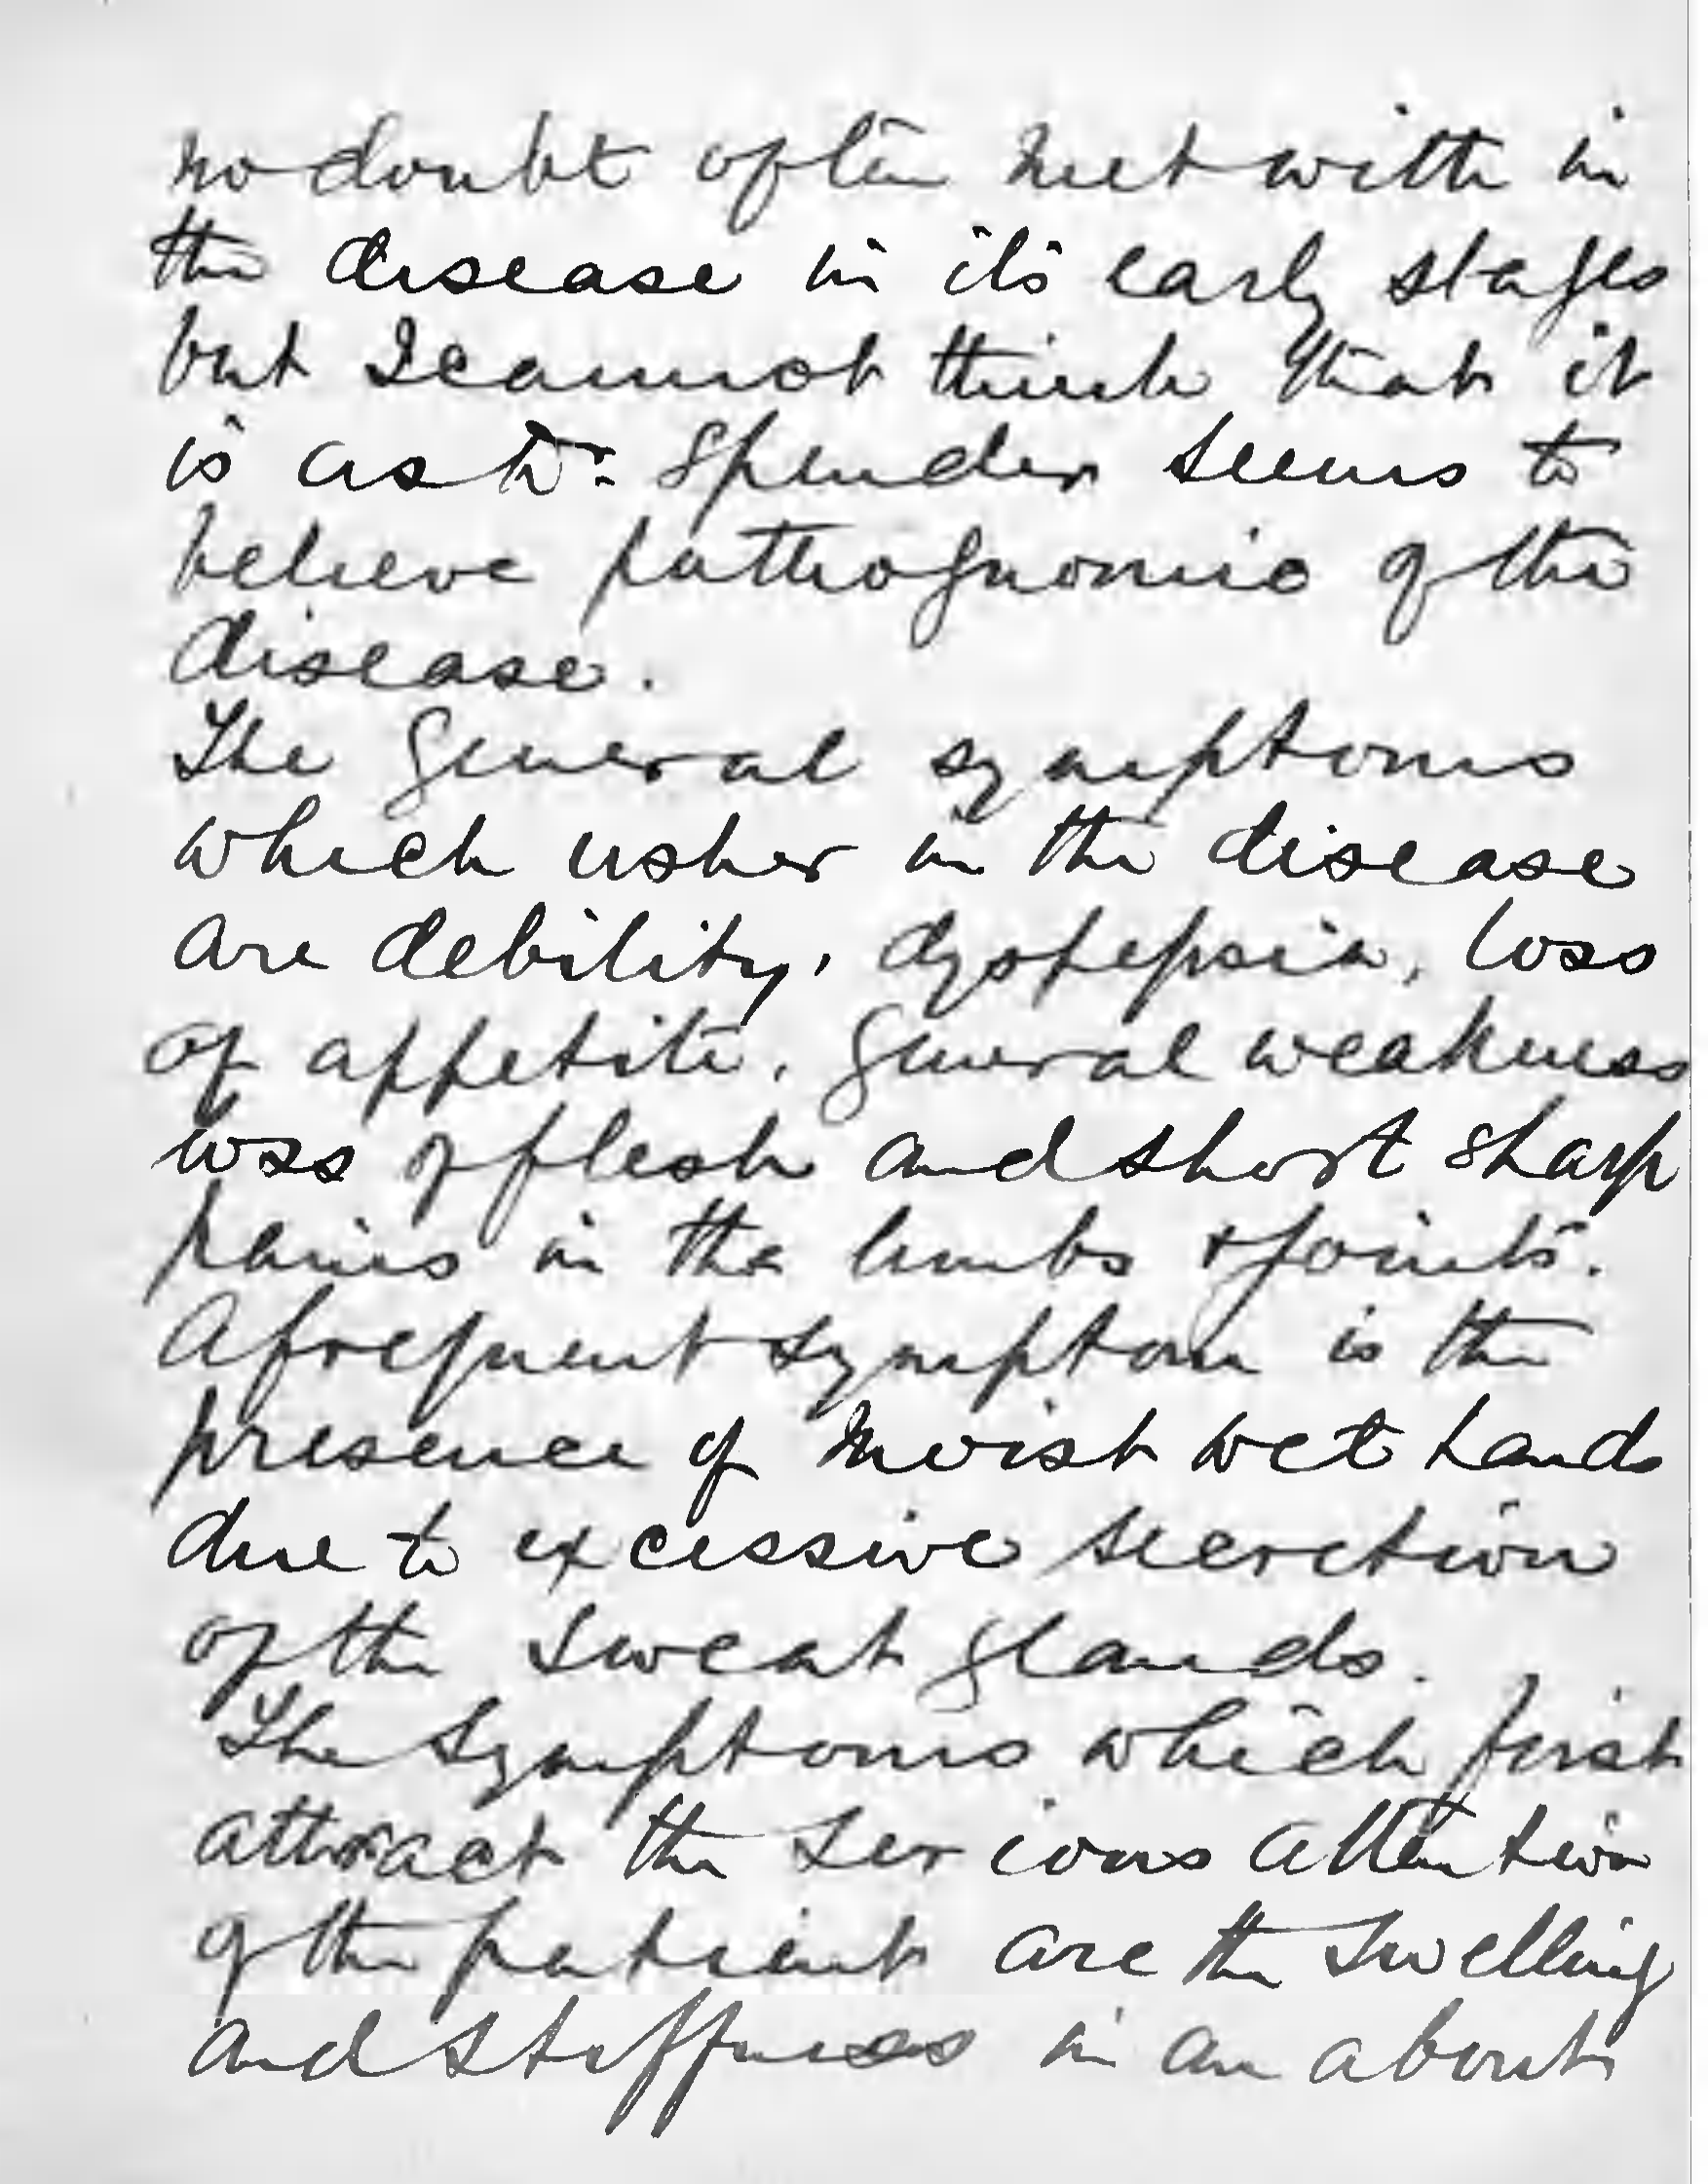 no doubt often met with in
the disease in its early stages
but I cannot think that it
is as Dr: Spender seems to
believe pathognomic of the
disease.
The general symptoms
which usher in the disease
are debility, dyspepsia, loss
of appetite, general weakness
loss of flesh and short sharp
pains in the limbs & joints.
A frequent symptom is the
presence of moist wet hands
due to excessive secretion
of the sweat glands.
The symptoms which first
attract the serious attention
of the patient are the swelling
and stiffness in an about